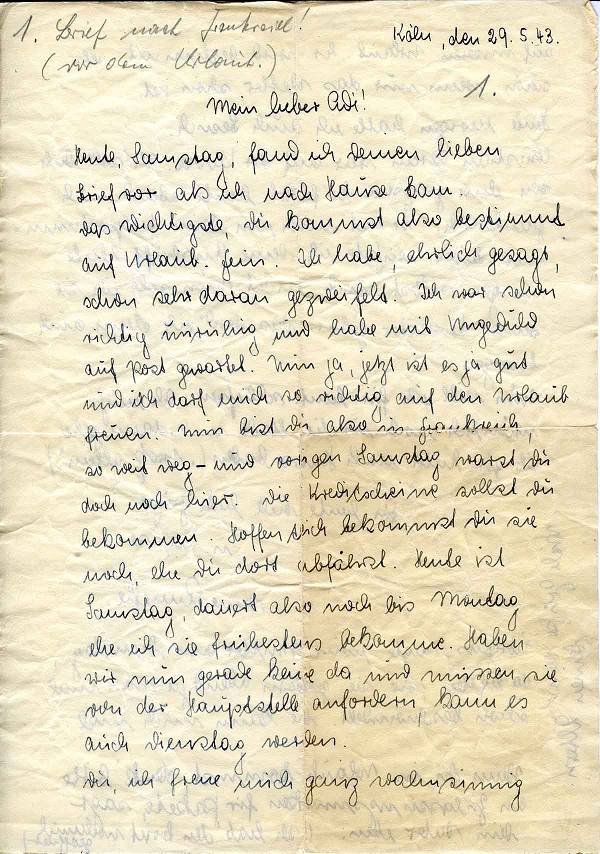 1. Brief nach Frankreich!
(vor dem Urlaub.)
Köln, den 29. 5. 43.
1.
Mein lieber Adi!
Heute, Samstag, fand ich deinen lieben
Brief vor als ich nach Hause kam.
Das Wichtigste, du kommst also bestimmt
auf Urlaub. Fein. Ich habe, ehrlich gesagt,
schon sehr daran gezweifelt. Ich war schon
richtig unruhig und habe mit Ungeduld
auf Post gewartet. Nun ja, jetzt ist es ja gut
und ich darf mich so richtig auf den Urlaub
freuen. Nun bist du also in Frankreich,
so weit weg – und vorigen Samstag warst du
doch noch hier. Die Kreditscheine sollst du
bekommen. Hoffentlich bekommst du sie
noch, ehe du dort abfährst. Heute ist
Samstag, dauert also noch bis Montag
ehe ich sie frühestens bekomme. Haben
wir nun gerade keine da und müssen sie
von der Hauptstelle anfordern, kann es
auch Dienstag werden.
Du, ich freue mich ganz wahnsinnig